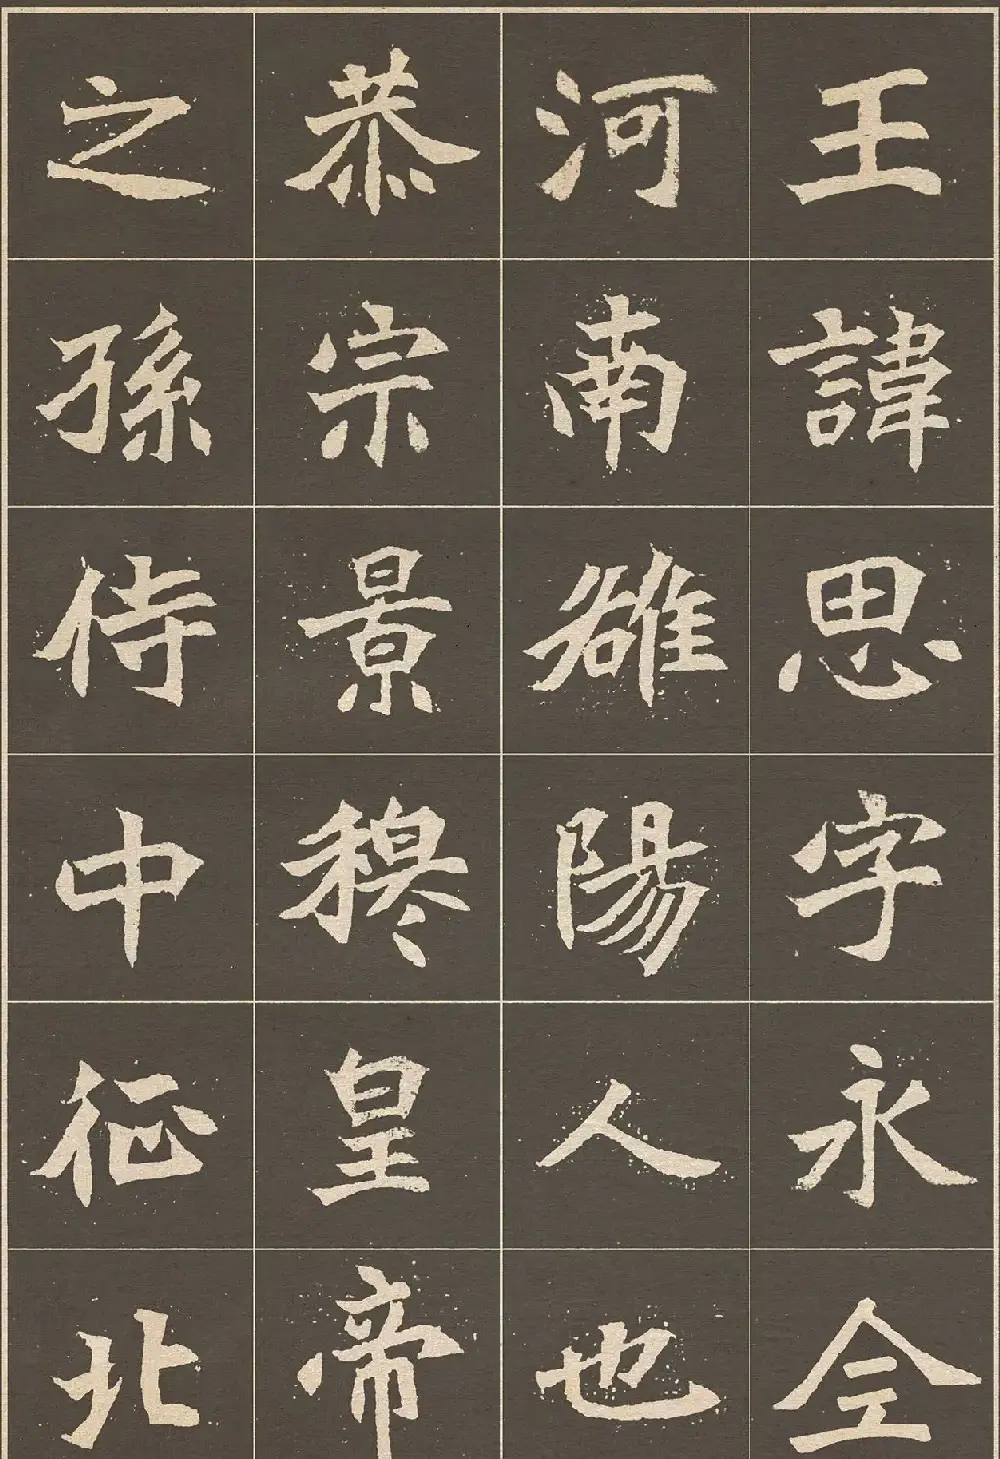 王諱思字永仝
河南雒陽人也
恭宗景穆皇帝
之孫侍中征北